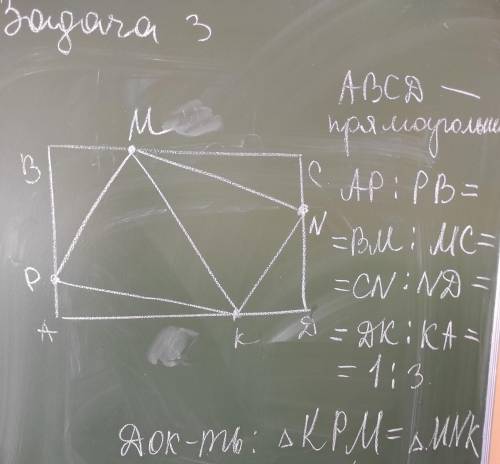 Задача 3
ABCD —
прямоугольн
AP : PB =
= BM : MC =
= CN : ND =
= DK : KA =
= 1 : 3
Док-ть: △KPM = △MNK
B
M
C
N
P
A
K
D